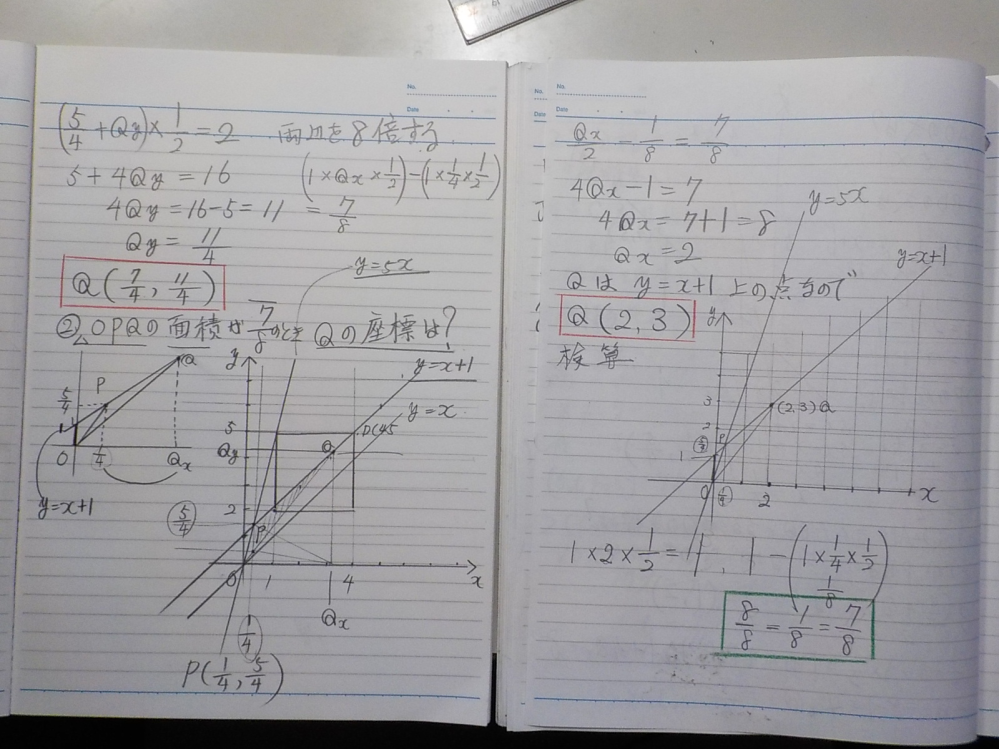 No.
Date
(5/4 + Qy) × 1/2 = 2 両辺を8倍する
5 + 4Qy = 16 (1 × Qx × 1/2) - (1 × 1/4 × 1/2)
4Qy = 16 - 5 = 11 = 7/8
Qy = 11/4
y = 5x
Q (7/4, 11/4)
② △OPQの面積が 7/8 のとき Qの座標は?
Q
P
5/4
1
O
1/4
Qx
y=x+1
y
y=x+1
y=x
5
Qy
Q
2
5/4
P
0
1
4
x
Qx
1/4
P(1/4, 5/4)
No.
Date
Qx/2 - 1/8 = 7/8
4Qx - 1 = 7
4Qx = 7 + 1 = 8
Qx = 2
y=5x
y=x+1
Qは y=x+1 上の点なので
Q (2, 3)
検算
y
3
(2,3)Q
2
P
5/4
1
0
1/4
2
x
1 × 2 × 1/2 = 1, 1 - (1 × 1/4 × 1/2)
1/8
8/8 - 1/8 = 7/8